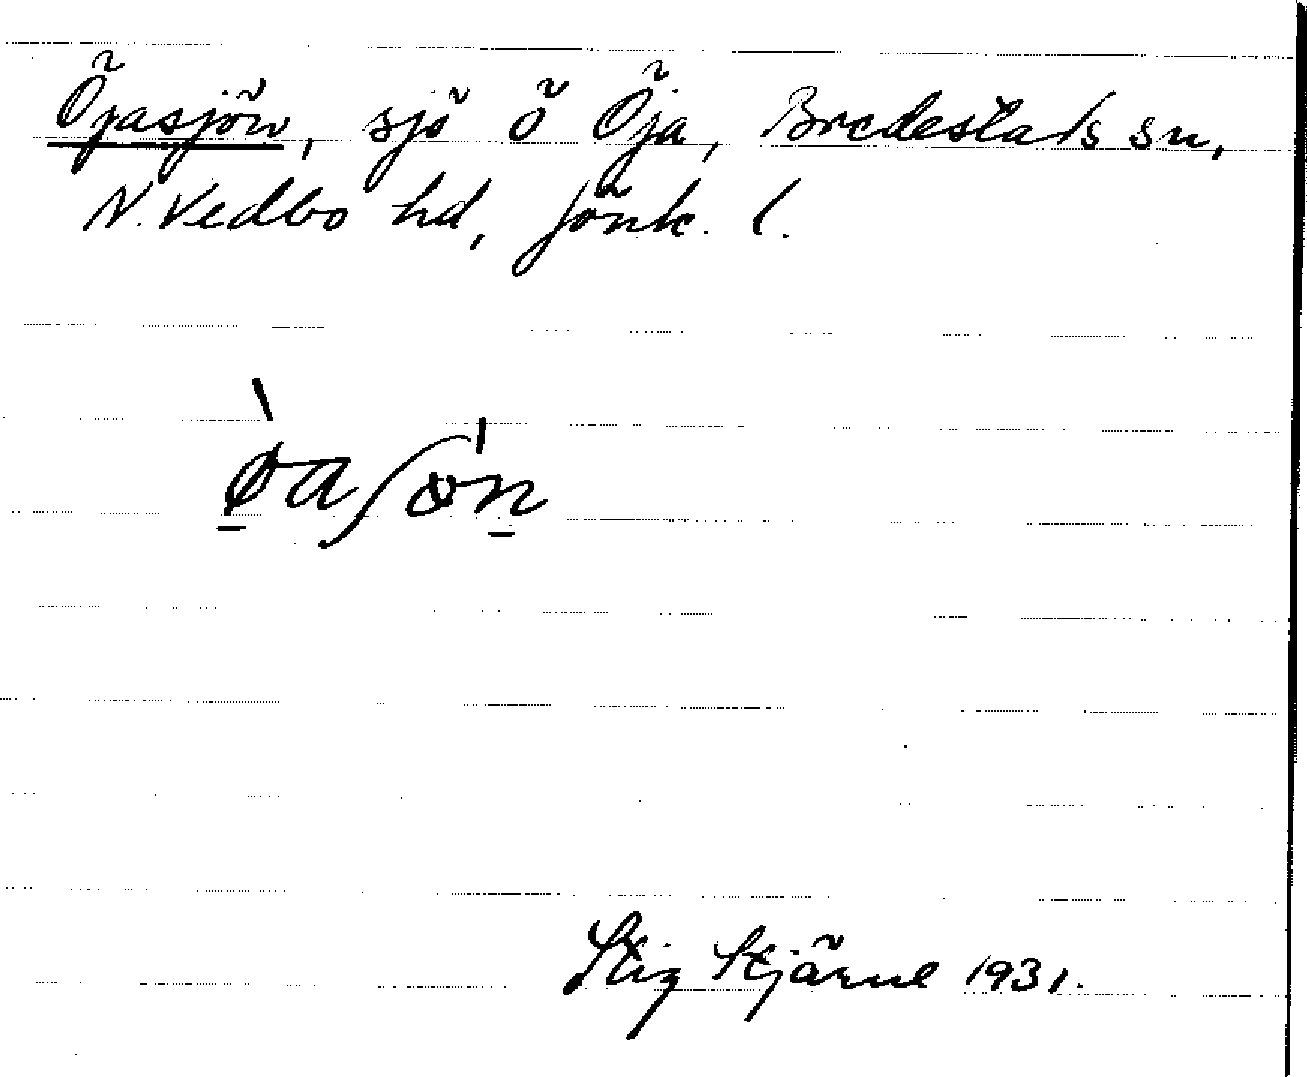 Öjasjön, sjö ö Öja, Bredestads sn,
N. Vedbo hd, Jönk. l.
Stig Stjärne 1931.